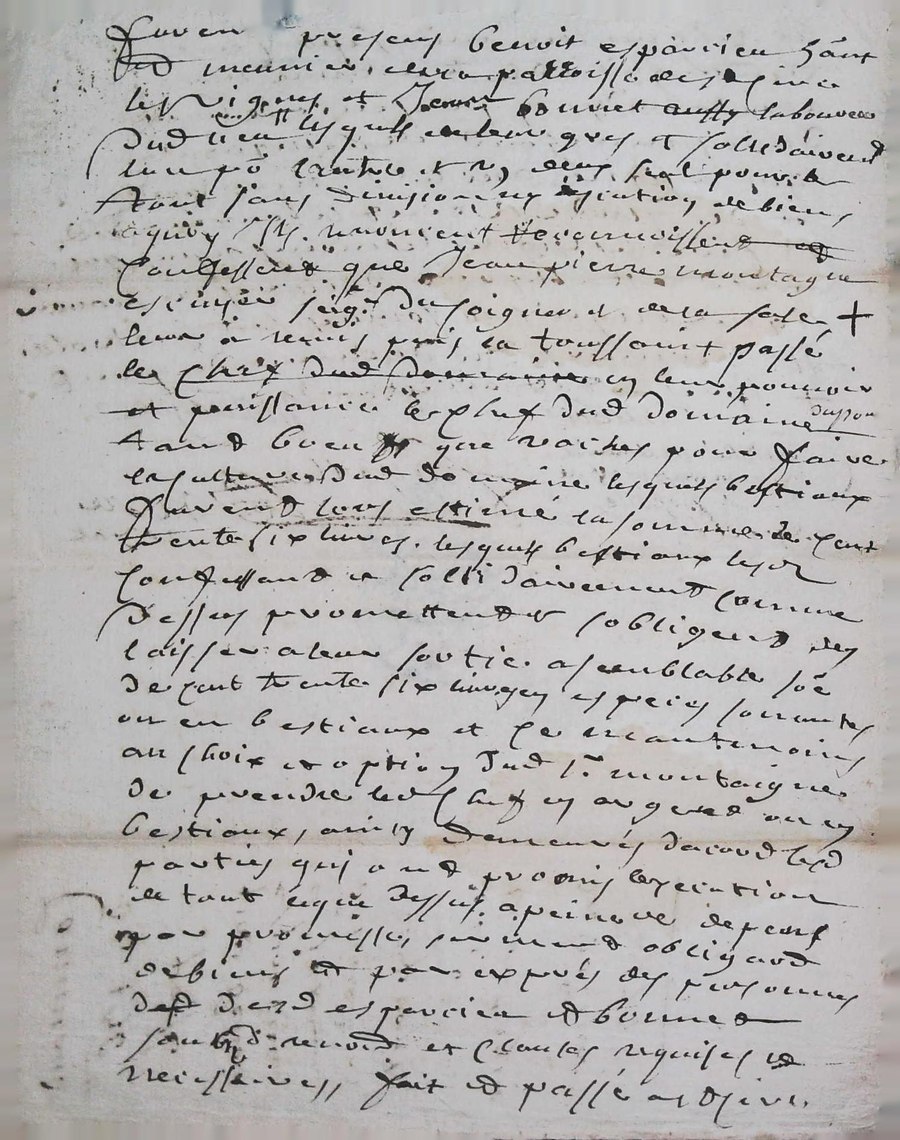 furen presens benoit esparcieu
meunier de la parroisse de
les vignes et Jean bonnet aussy laboureur
dud lieu lesquels de leur gres et sollidairemt
lun po lautre et deux seul pour le
tout sans division ny de biens
a quoy Ils renoncent recognoissent et
confessent que Jean pierre montagne
escuyer seigr du soignet et de la sale +
leur a remis puis la toussaint passé
le cheif dud domaine en leur pouvoir
et puissance le chef dud domaine
tant boeufs que vaches pour faire
la culture dud domaine lesquels bestiaux
furent tous estimé la somme de cent
trente six livres lesquels bestiaux
confessant et sollidairement comme
dessus promettent et sobligent de
laisser a leur sortie a semblable soe
de cent trente six livres en especes sonnantes
ou en bestiaux et ce
au choix et option dud sr montaigne
de prendre led chef en argent ou en
bestiaux, ainsy demeurés dacord lesd
parties qui ont promis lexecution
de tout ce que dessus a peine de despens
par promesse serment obligaon
de biens et par exprés des personnes
desd esparcieu et bonnet
renond et clauses requises et
necessaires, fait et passé au